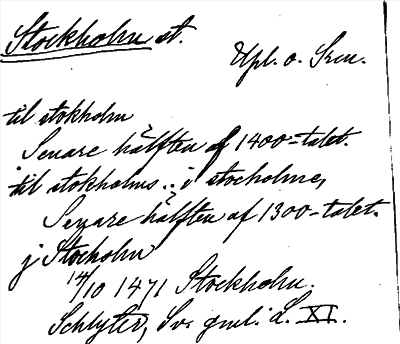 Stockholm st.
Upl. o. Srm.
til stokholm
Senare hälften af 1400-talet.
til stokholms .. i stocholme,
Senare hälften af 1300-talet.
j Stocholm
14/10 1471 Stockholm.
Schlyter, Sv. gml. L. XI.